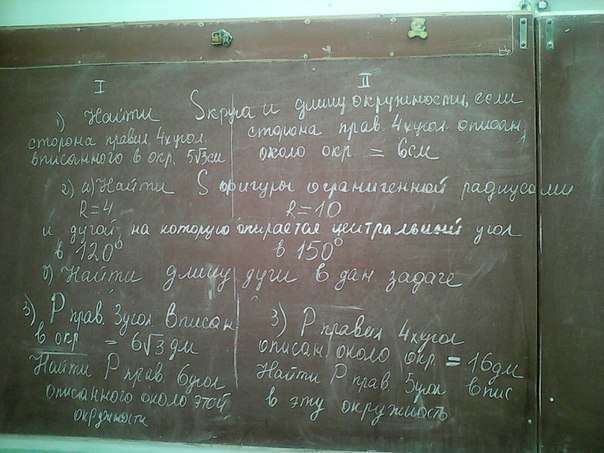 I II
1) Найти S круга и длину окружности, если
сторона правил. 4хугол. вписанного в окр. 5√3 см
сторона прав. 4хугол. описан. около окр = 6см
2) а) Найти S фигуры ограниченной радиусами
R=4 R=10
и дугой, на которую опирается центральный угол
в 120° в 150°
б) Найти длину дуги в дан. задаче
3) P прав. 3угол. вписан.
в окр = 6√3 дм
Найти P прав. 6угол
описанного около этой
окружности
3) P правил 4хугол
описан. около окр = 16дм
Найти P прав. 5угол впис
в эту окружность